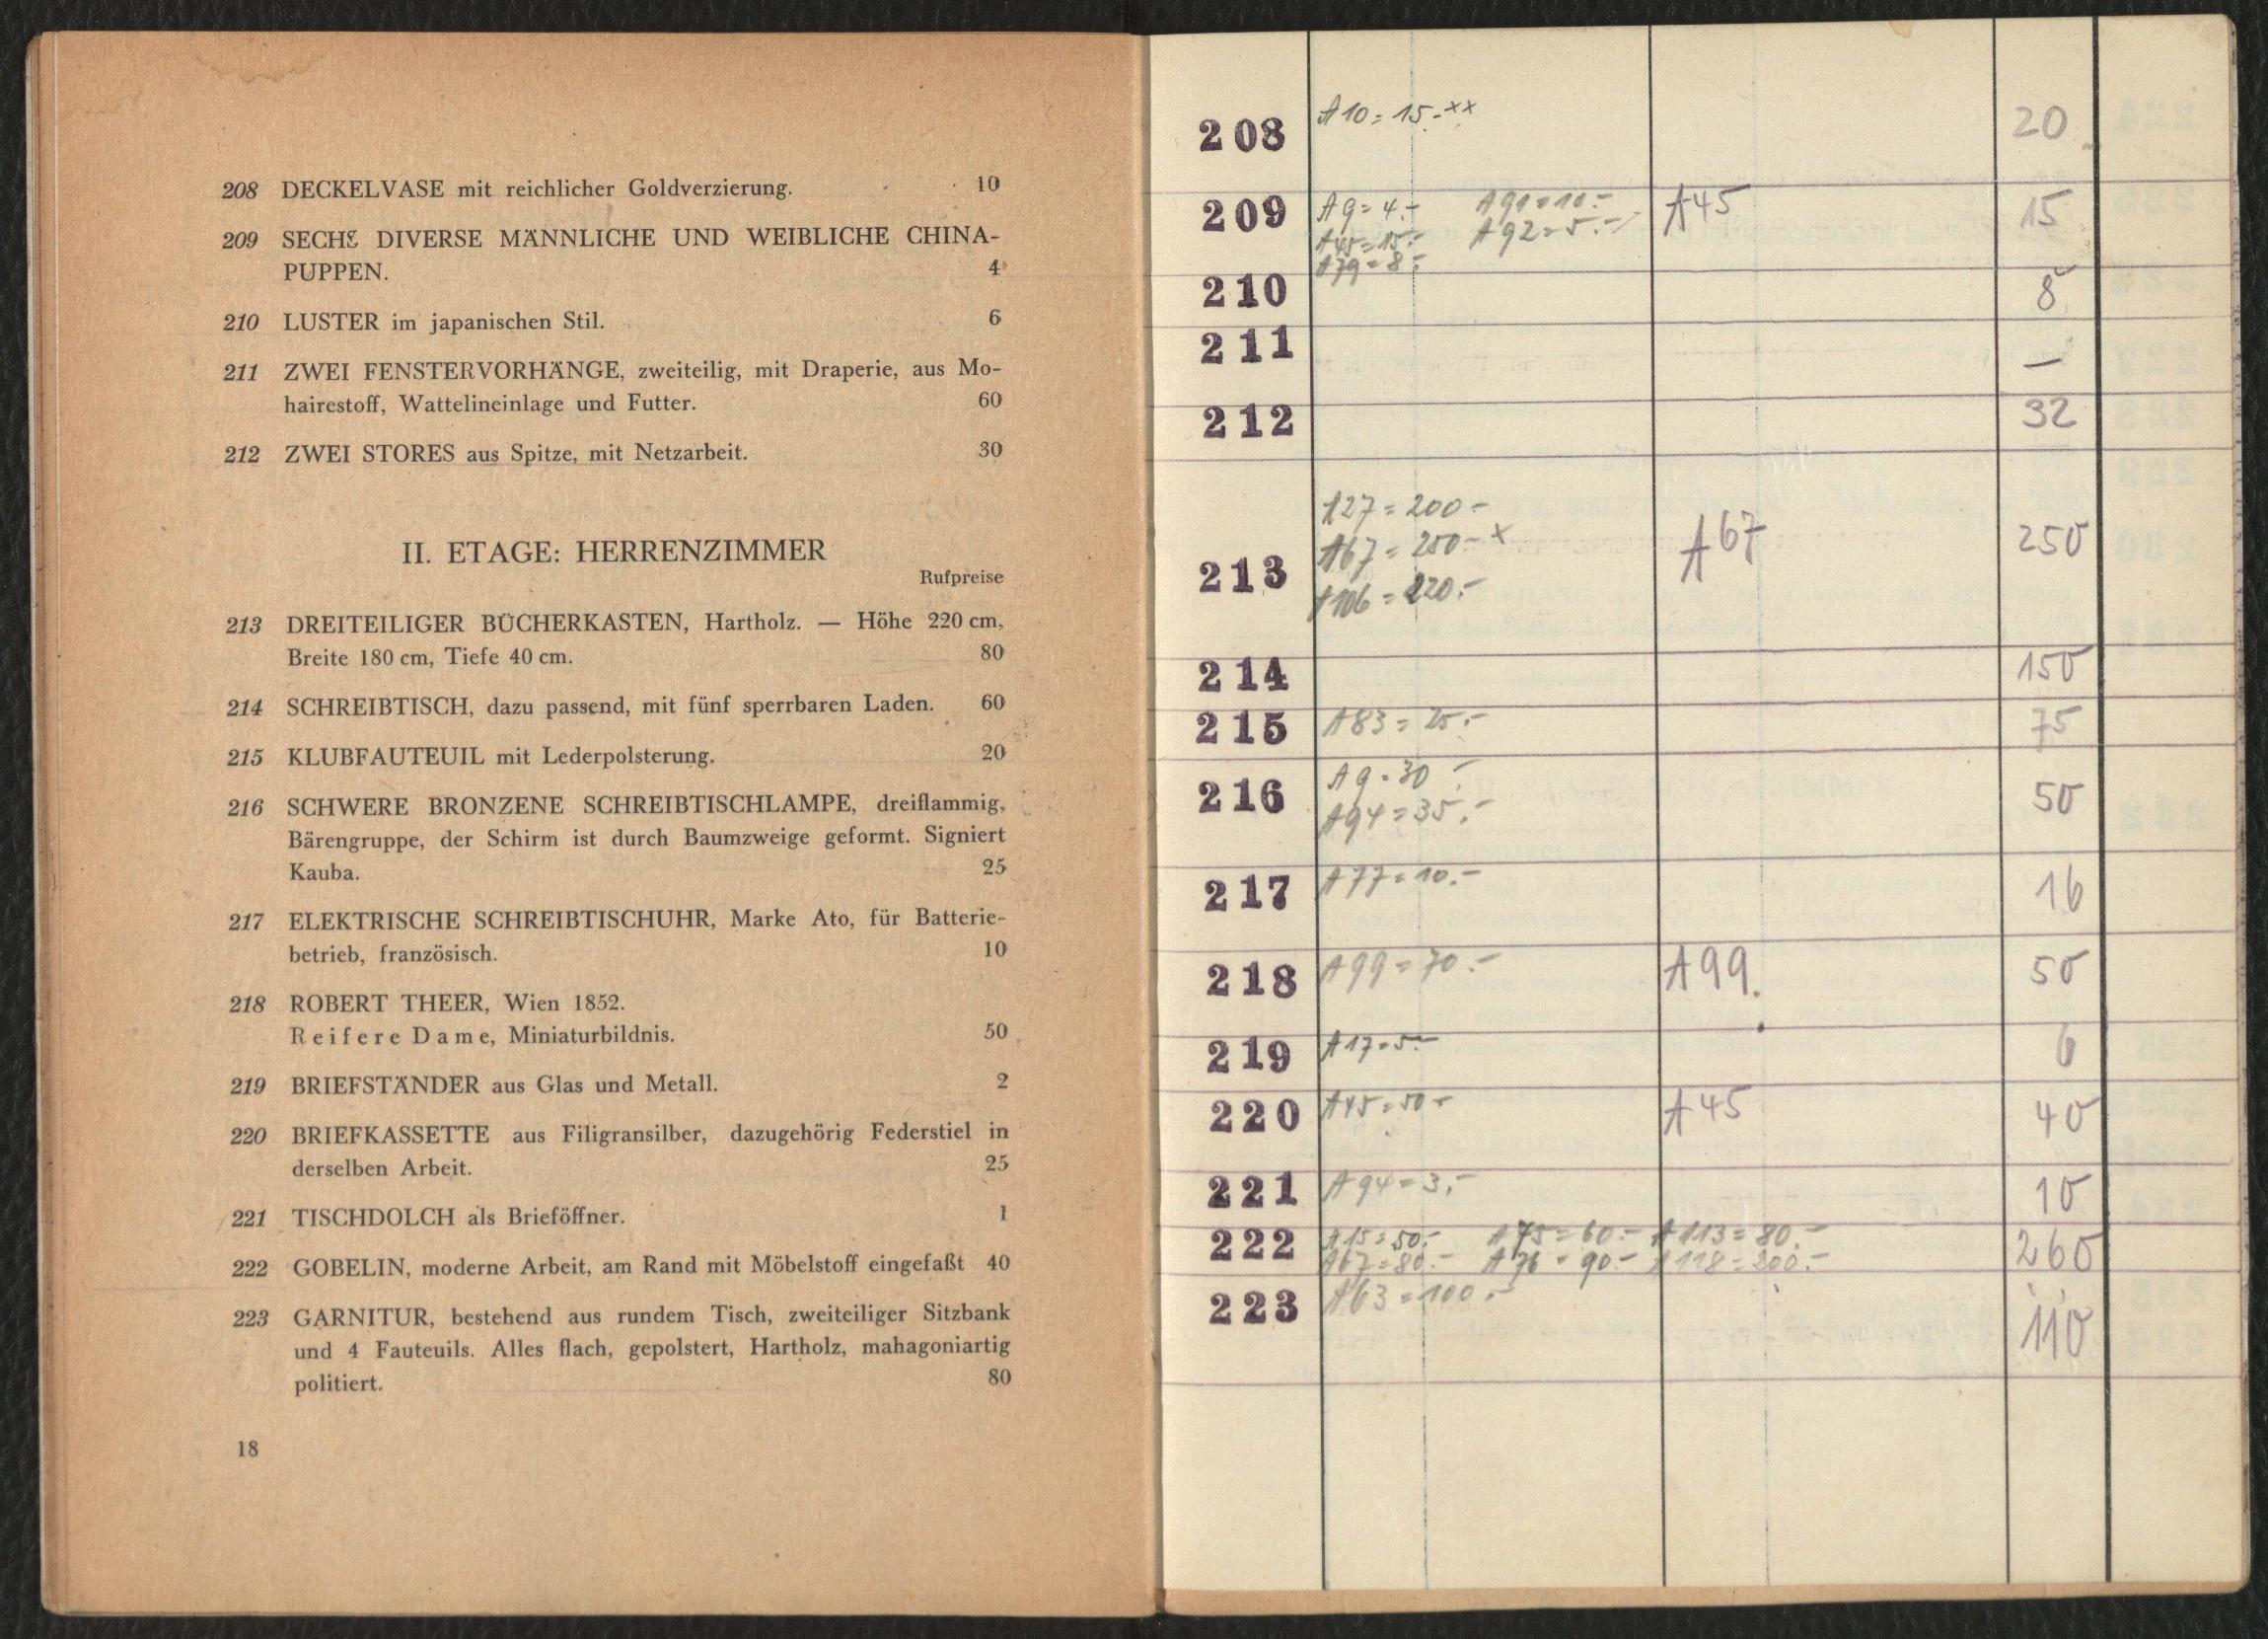 208 DECKELVASE mit reichlicher Goldverzierung. 10
209 SECHS DIVERSE MÄNNLICHE UND WEIBLICHE CHINA-
PUPPEN. 4
210 LUSTER im japanischen Stil. 6
211 ZWEI FENSTERVORHÄNGE, zweiteilig, mit Draperie, aus Mo-
hairestoff, Wattelineinlage und Futter. 60
212 ZWEI STORES aus Spitze, mit Netzarbeit. 30
II. ETAGE: HERRENZIMMER
Rufpreise
213 DREITEILIGER BÜCHERKASTEN, Hartholz. — Höhe 220 cm,
Breite 180 cm, Tiefe 40 cm. 80
214 SCHREIBTISCH, dazu passend, mit fünf sperrbaren Laden. 60
215 KLUBFAUTEUIL mit Lederpolsterung. 20
216 SCHWERE BRONZENE SCHREIBTISCHLAMPE, dreiflammig,
Bärengruppe, der Schirm ist durch Baumzweige geformt. Signiert
Kauba. 25
217 ELEKTRISCHE SCHREIBTISCHUHR, Marke Ato, für Batterie-
betrieb, französisch. 10
218 ROBERT THEER, Wien 1852.
Reifere Dame, Miniaturbildnis. 50
219 BRIEFSTÄNDER aus Glas und Metall. 2
220 BRIEFKASSETTE aus Filigransilber, dazugehörig Federstiel in
derselben Arbeit. 25
221 TISCHDOLCH als Brieföffner. 1
222 GOBELIN, moderne Arbeit, am Rand mit Möbelstoff eingefaßt 40
223 GARNITUR, bestehend aus rundem Tisch, zweiteiliger Sitzbank
und 4 Fauteuils. Alles flach, gepolstert, Hartholz, mahagoniartig
politiert. 80
18
208 A10=15.-xx 20
209 A9=4.- A91=10.- A45 15
A45=15.- A92=5.-
A79=8.-
210 8
211 —
212 32
A27=200-
213 A67=250-x A67 250
A106=220.-
214 150
215 A83=25.- 75
216 A9=30.- 50
A94=35.-
217 A77=10.- 16
218 A99=70.- A99. 50
219 A17=5.- 6
220 A45=50- A45 40
221 A94=3.- 10
222 A15=50.- A75=60.- A113=80.- 260
A67=80.- A76=90.- A118=200.-
223 A63=100.- 110